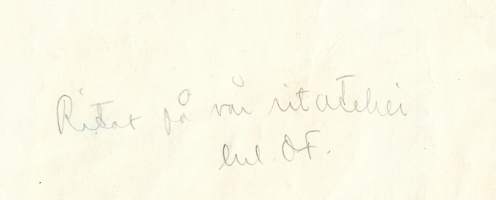 Ritat på vår ritateliei
enl OF.